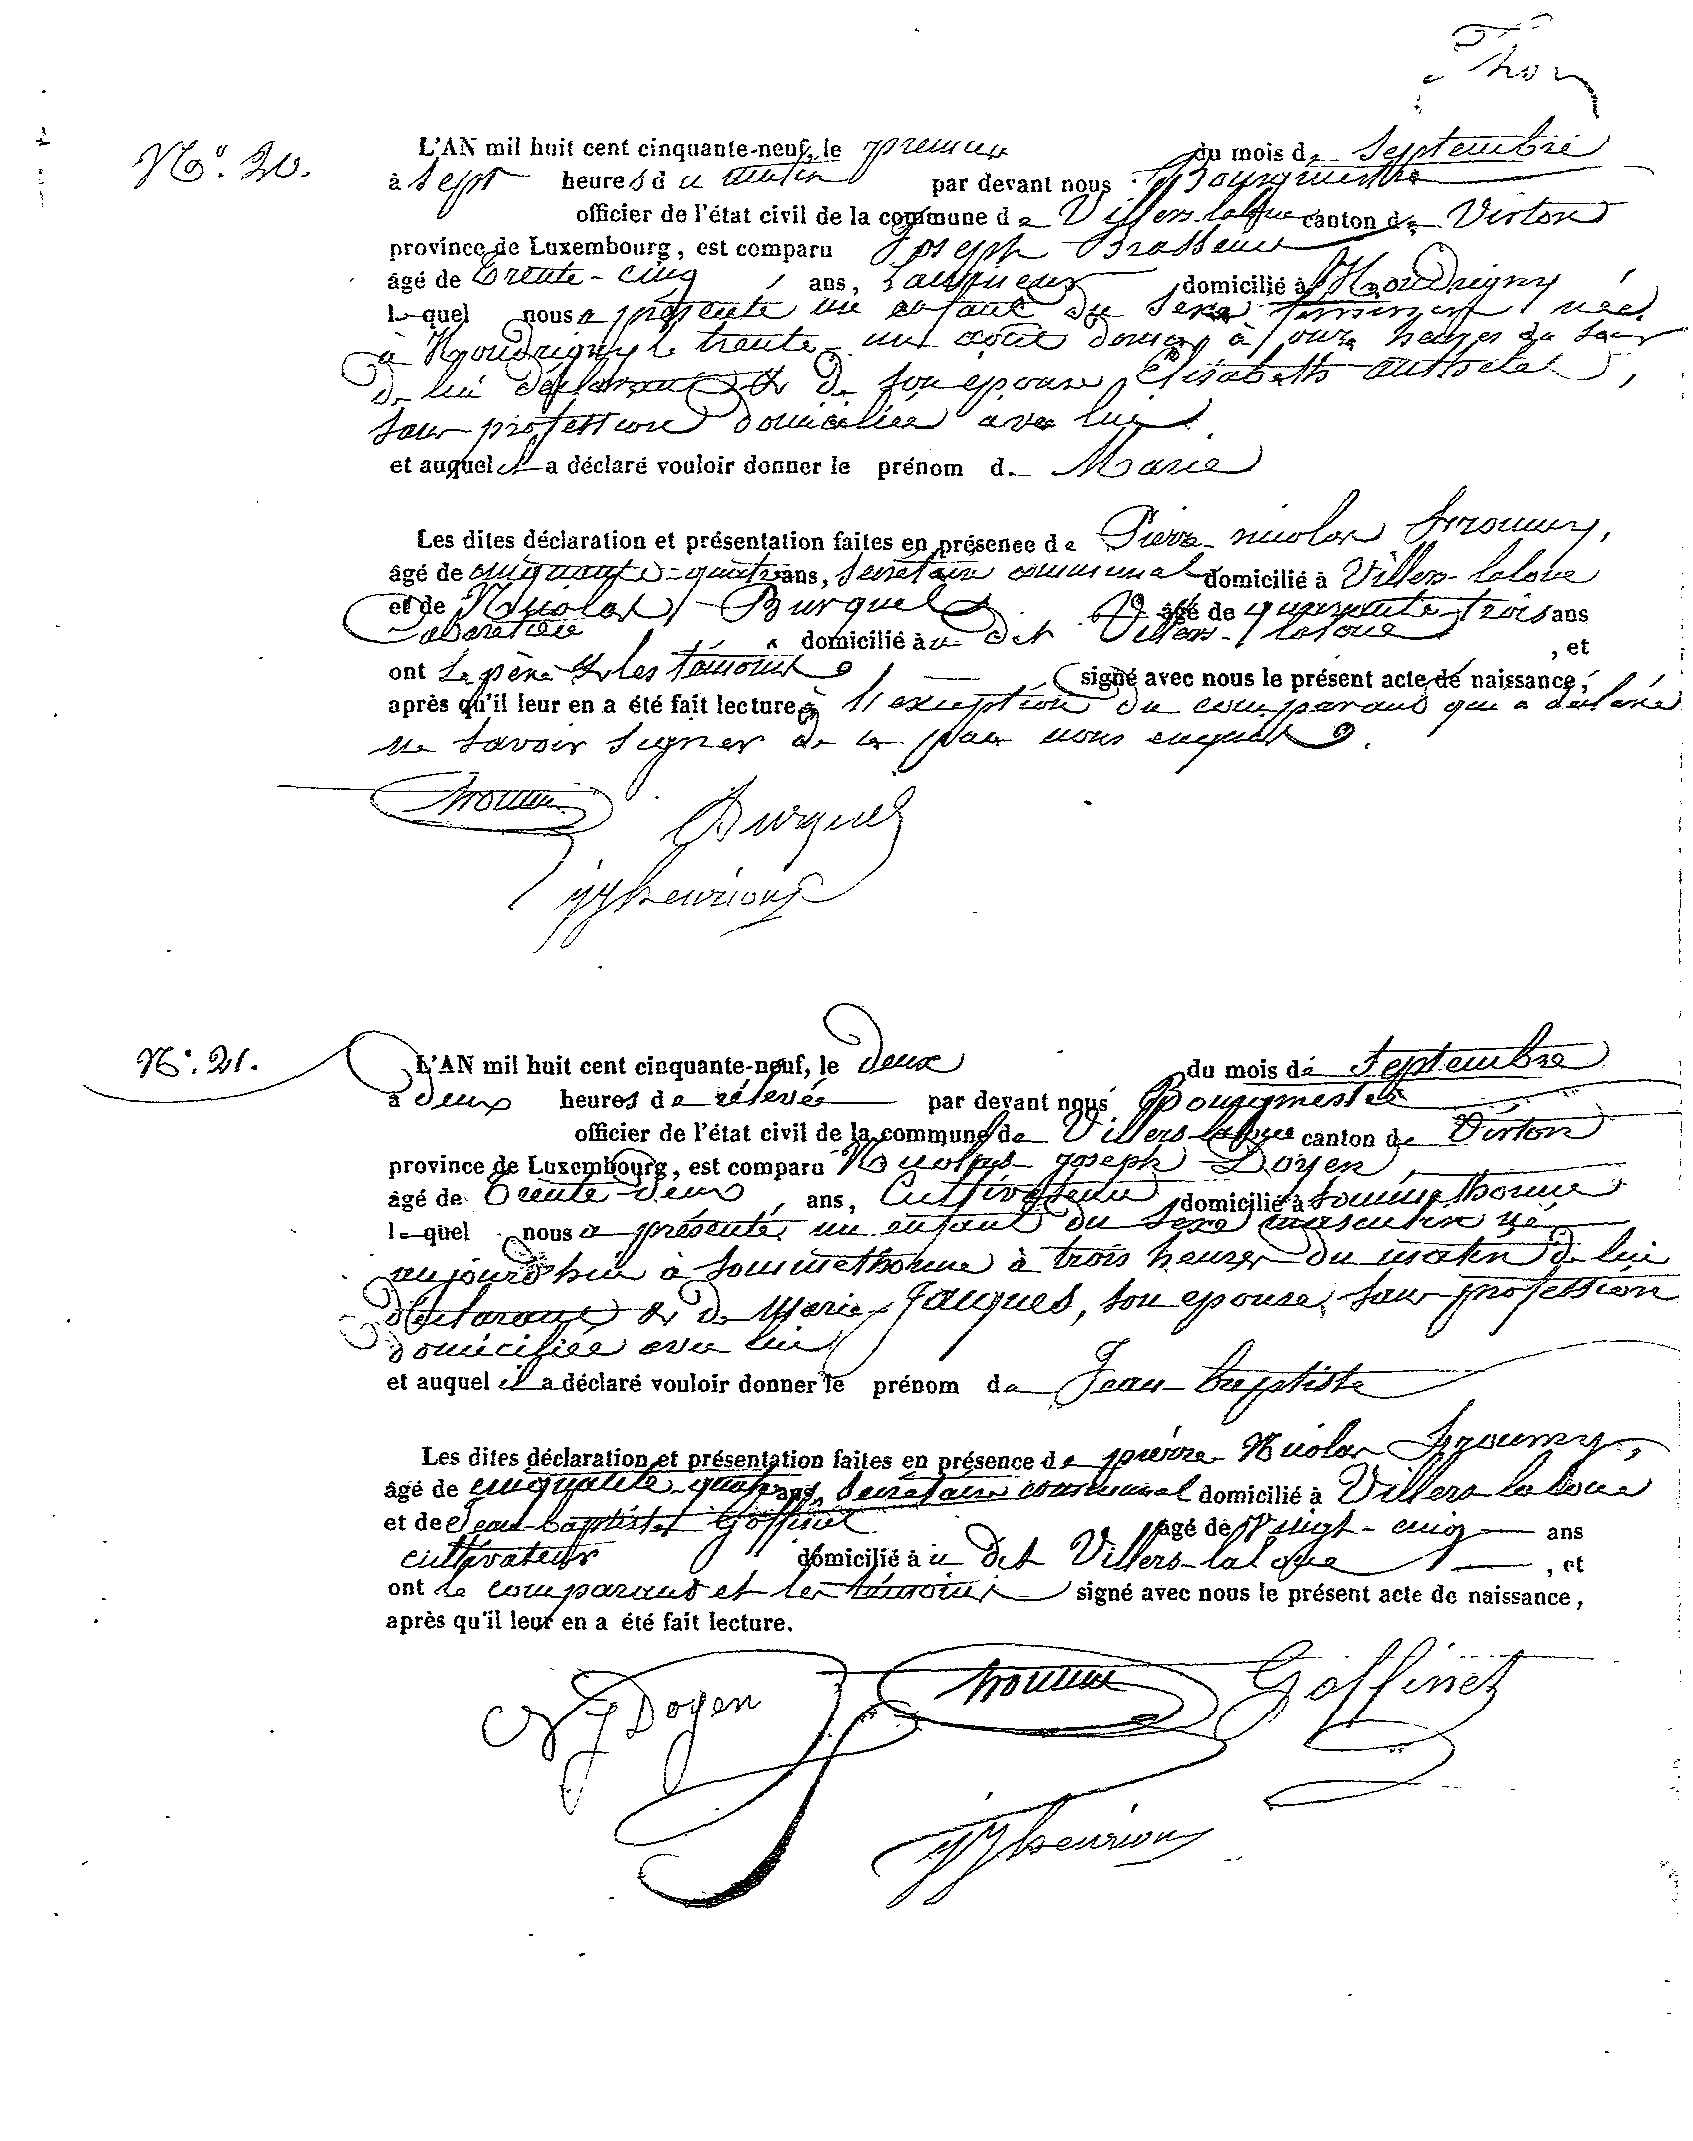 Thon
N° 20.
L'AN mil huit cent cinquante-neuf, le premier du mois de Septembre
à sept heures du matin par devant nous Bourgmestre
officier de l'état civil de la commune de Villers-laloue canton de Virton
province de Luxembourg, est comparu Joseph Brasseur
âgé de trente-cinq ans, domicilié à Houdrigny
lequel nous a présenté un enfant du sexe feminin née
à Houdrigny le trente-un août dernier à onze heures du soir
de lui déclarant & de son epouse, Elisabeth
sans profession domiciliée avec lui
et auquel il a déclaré vouloir donner le prénom de Marie
Les dites déclaration et présentation faites en présence de Pierre-nicolas
âgé de cinquante-quatre ans, Secretaire communal domicilié à Villers-laloue
et de Nicolas Burquel âgé de quarante-trois ans
Cabaretier domicilié à u dit Villers-laloue, et
ont le père & les témoins signé avec nous le présent acte de naissance,
après qu'il leur en a été fait lecture, à l'exception du comparant qui a déclaré
ne savoir signer de ce par nous enquis.
Burquel
jjhenrion
N° 21.
L'AN mil huit cent cinquante-neuf, le deux du mois de Septembre
à deux heures de rélevée par devant nous Bourgmestre
officier de l'état civil de la commune de Villers-laloue canton de Virton
province de Luxembourg, est comparu Nicolas-joseph Doyen,
âgé de trente-deux, ans, Cultivateur domicilié à Sommethonne
lequel nous a présenté un enfant du sexe masculin né
aujourd'hui à Sommethonne à trois heures du matin de lui
déclarant & de Marie Jacques, son epouse, sans profession
domiciliée avec lui
et auquel il a déclaré vouloir donner le prénom de Jean-baptiste
Les dites déclaration et présentation faites en présence de pierre-Nicolas
âgé de cinquante-quatre ans, Secretaire communal domicilié à Villers-laloue
et de Jean-baptiste Goffinet âgé de Vingt-cinq ans
cultivateur domicilié à u dit Villers-laloue, et
ont le comparant et les témoins signé avec nous le présent acte de naissance,
après qu'il leur en a été fait lecture.
NJ Doyen Goffinet
jjhenrion